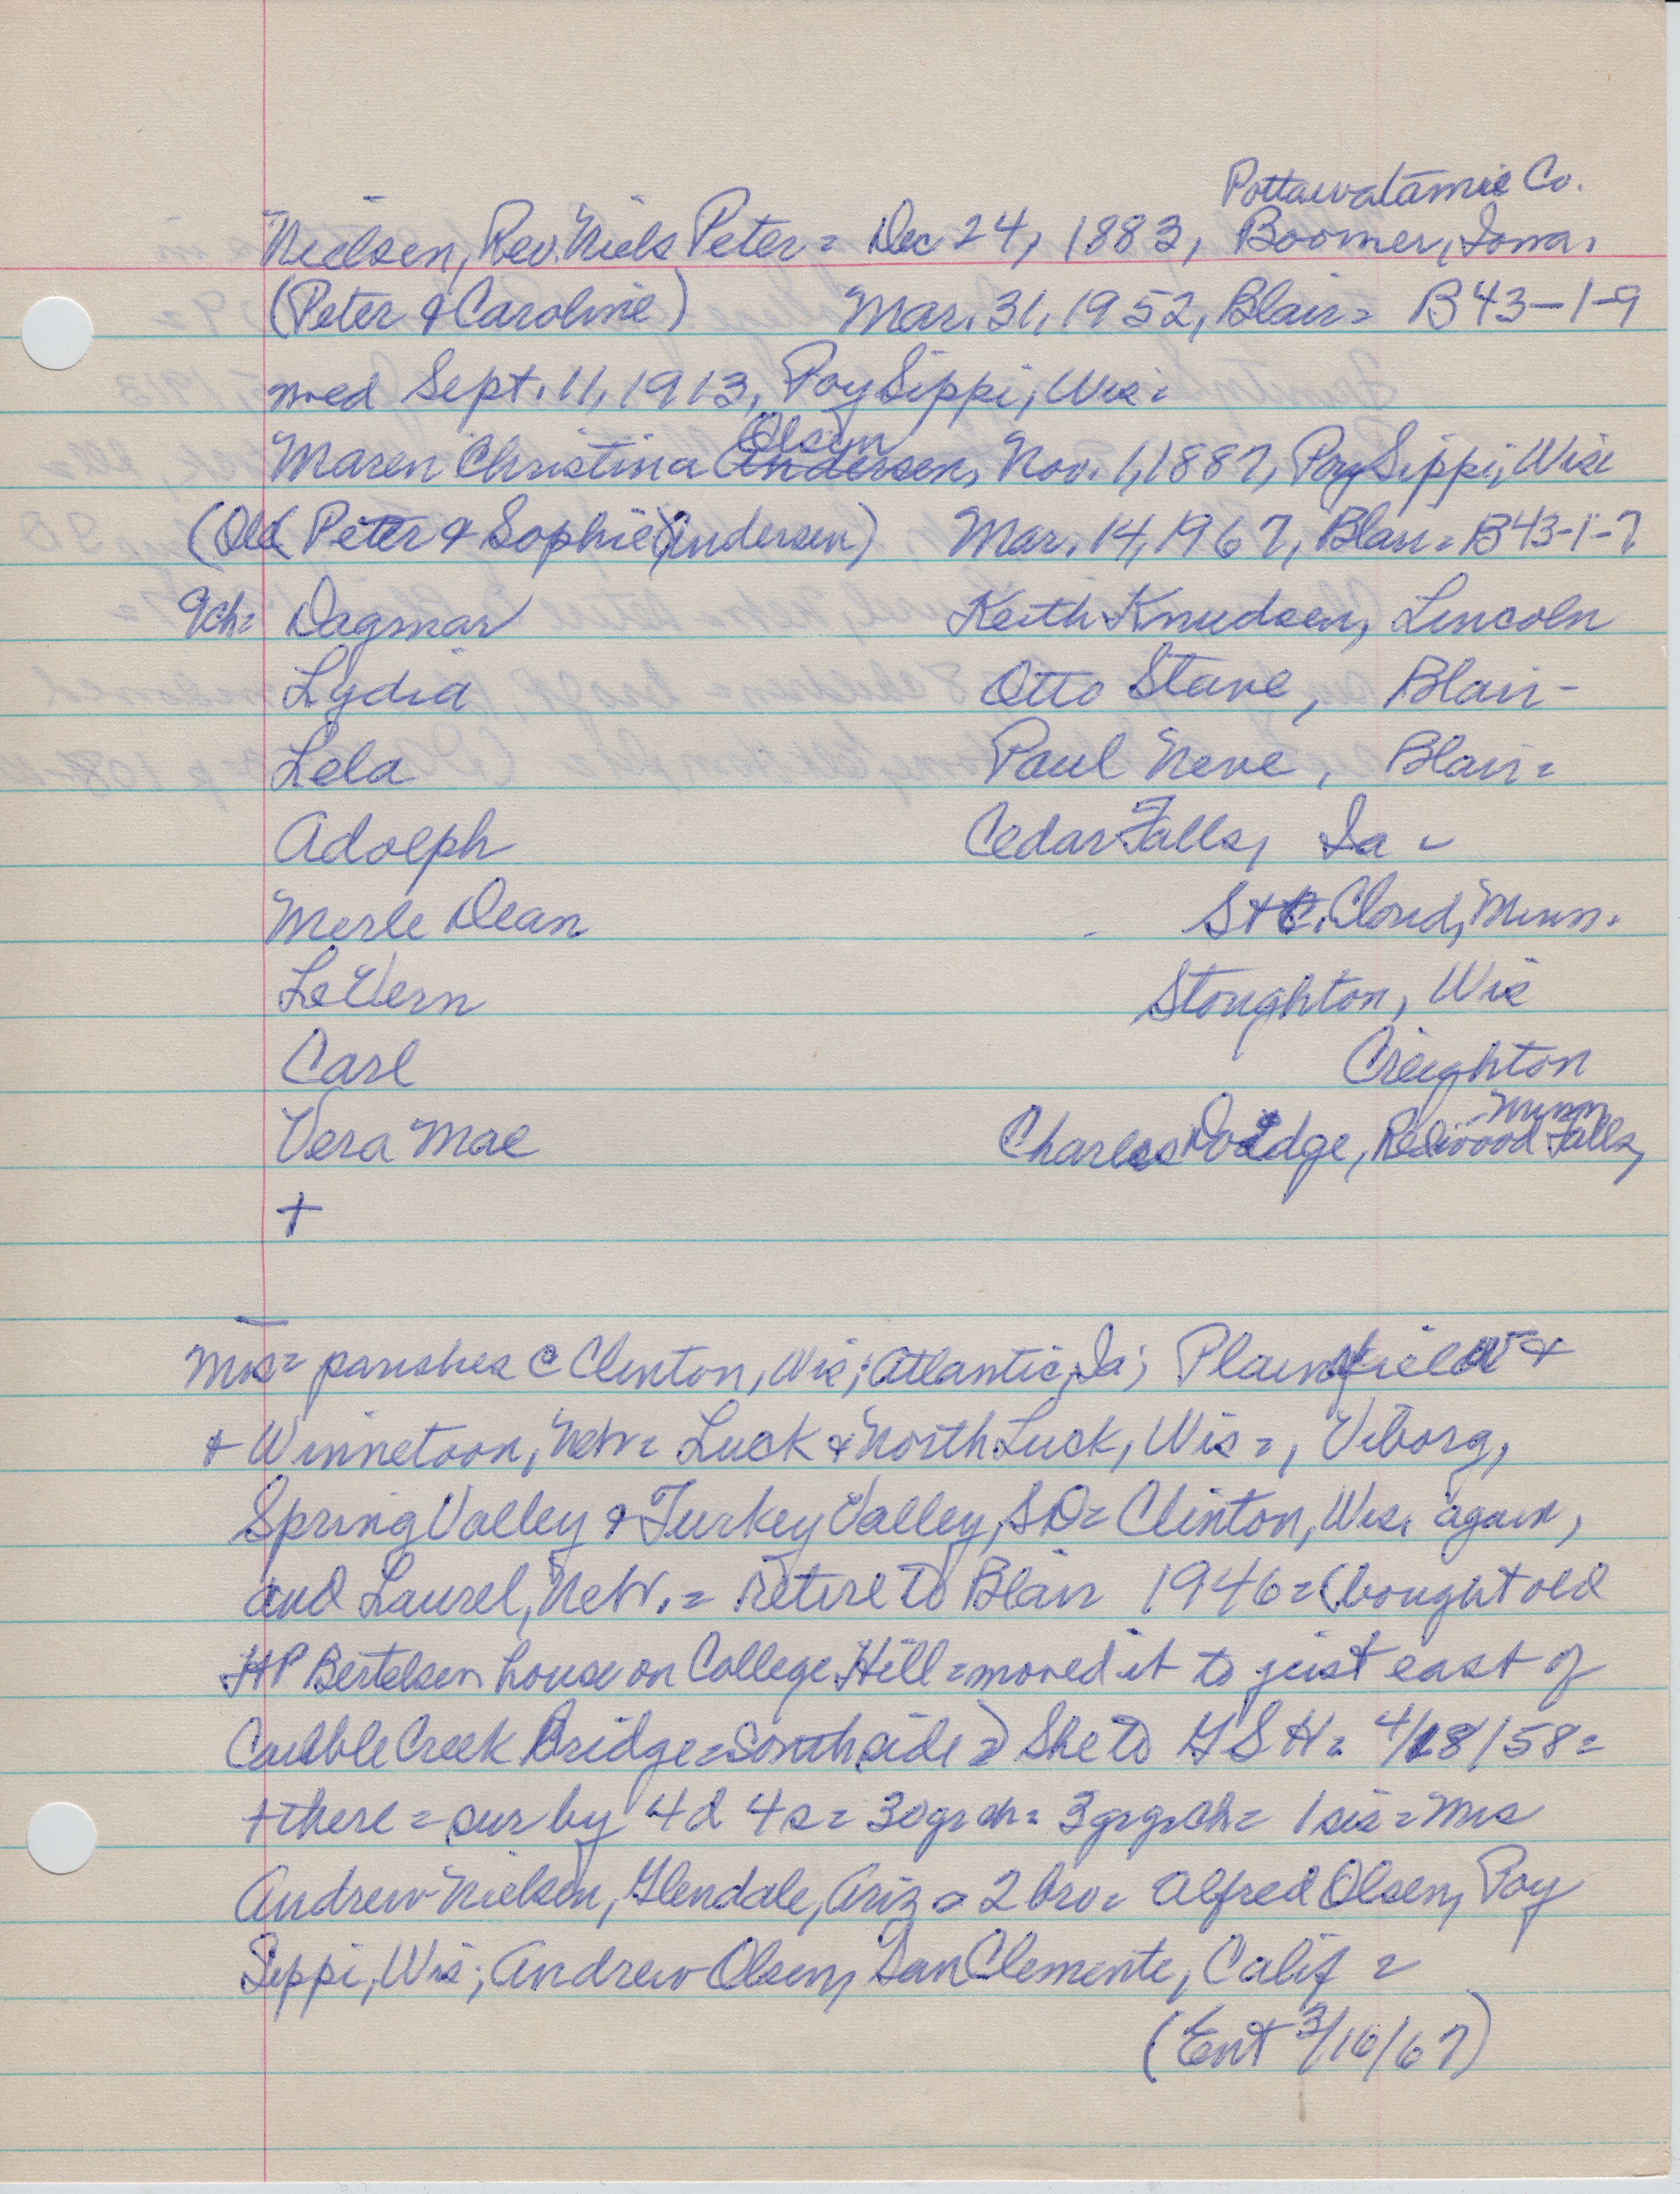 Pottawatamie Co.
Nielsen, Rev. Niels Peter = Dec 24, 1883, Boomer, Iowa.
(Peter & Caroline) Mar. 31, 1952, Blair = B43-1-9
med Sept. 11, 1913, Poy Sippi, Wis =
Olsen
Maren Christina Andersen, Nov. 1, 1887, Poy Sippi, Wis
(Old (Peter & Sophie (Andersen) Mar. 14, 1967, Blair = B43-1-7
9ch = Dagmar Keith Knudsen, Lincoln
Lydia Otto Stave, Blair -
Lela Paul Neve, Blair =
Adolph Cedar Falls, Ia =
Merle Dean St. Cloud, Minn.
LeVern Stoughton, Wis
Carl Creighton
Minn
Vera Mae Charles Dodge, Redwood Falls,
+
Mrs = parishes c Clinton, Wis; Atlantic, Ia; Plainfield +
+ Winnetoon, Nebr = Luck & North Luck, Wis =, Viborg,
Spring Valley & Turkey Valley, SD = Clinton, Wis. again,
and Laurel, Nebr. = retire to Blair 1946 = (bought old
HP Bertelsen house on College Hill = moved it to just east of
Caulble Creek Bridge = south side =) She to GSH = 4/18/58 =
+ there = sur by 4d 4s = 30 gr ch = 3 gr gr ch = 1 sis = Mrs
Andrew Nielsen, Glendale, Ariz = 2 bro = Alfred Olsen, Poy
Sippi, Wis; Andrew Olsen, San Clemente, Calif =
(Ent 3/16/67)